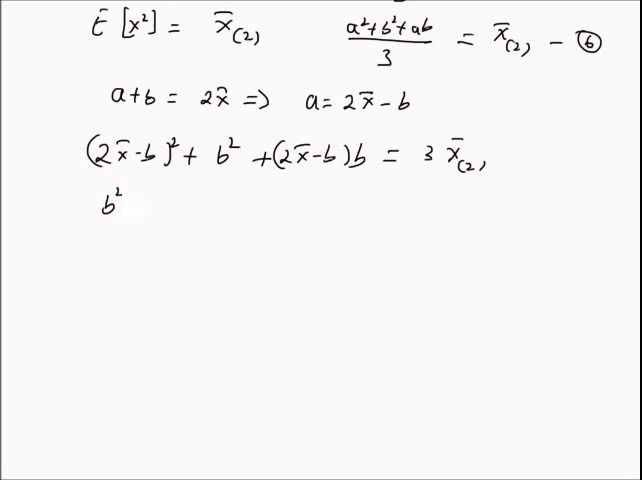 E[x²] = x̄₍₂₎  (a²+b²+ab)/3 = x̄₍₂₎ - ⑥
a+b = 2x̄ => a = 2x̄-b
(2x̄-b)² + b² + (2x̄-b)b = 3 x̄₍₂₎
b²